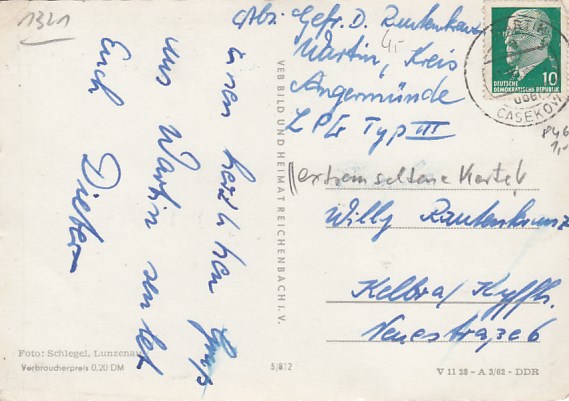 1321
Abs. Gefr. D. Rautenkranz
Wartin, Kreis
Angermünde
LPG Typ III
4,-
10
DEUTSCHE
DEMOKRATISCHE REPUBLIK
CASEKOW
846
1,-
(extrem seltene Karte!
Willy Rautenkranz
Kelbra/Kyffh.
Neuestraße 6
herzlichen Gruß
aus Wartin sendet
Euch
Dieter
VEB BILD UND HEIMAT REICHENBACH I. V.
Foto: Schlegel, Lunzenau
Verbraucherpreis 0,20 DM
5/812
V 11 28 - A 3/62 - DDR